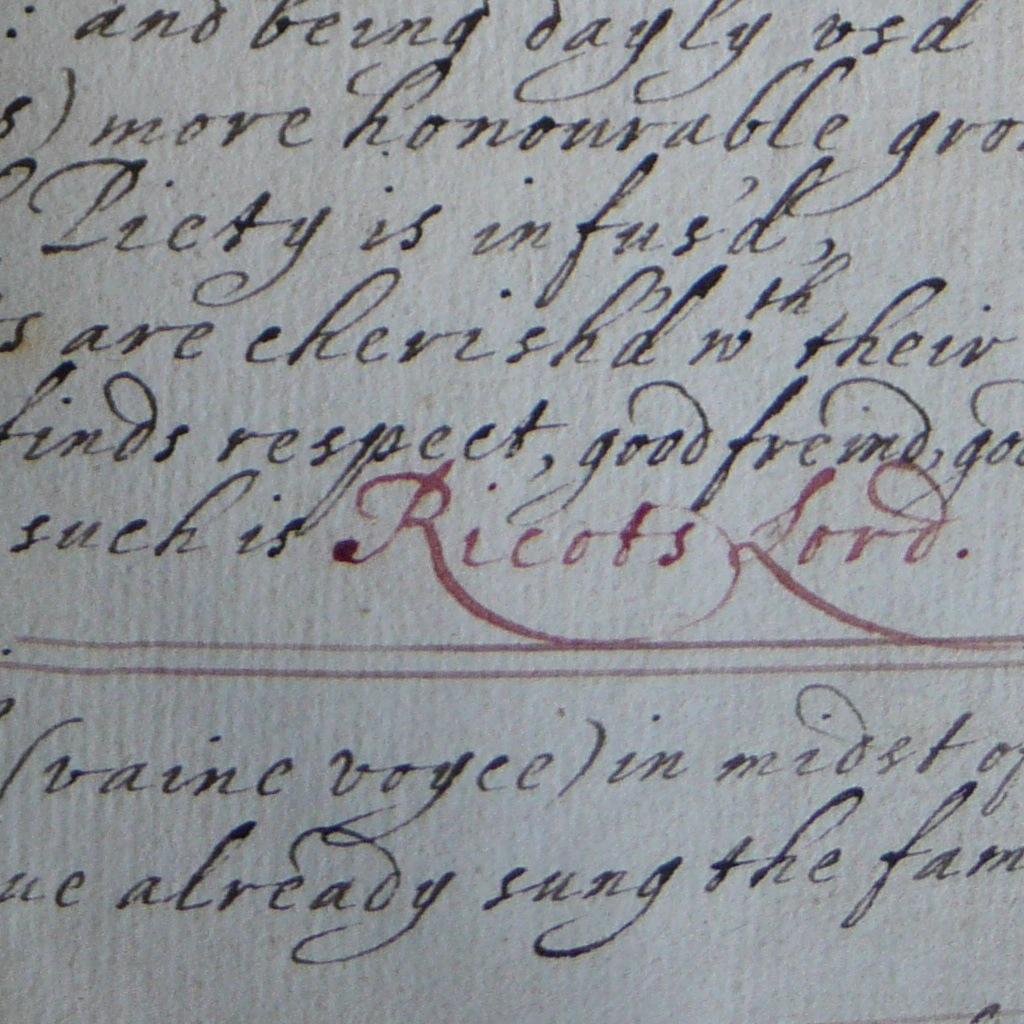 : and being dayly vsd
s) more honourable gro
Piety is infus'd,
s are cherish'd wth their
finds respect, good freind, goo
such is Ricots Lord.
(vaine voyce) in midst of
ue already sung the fam